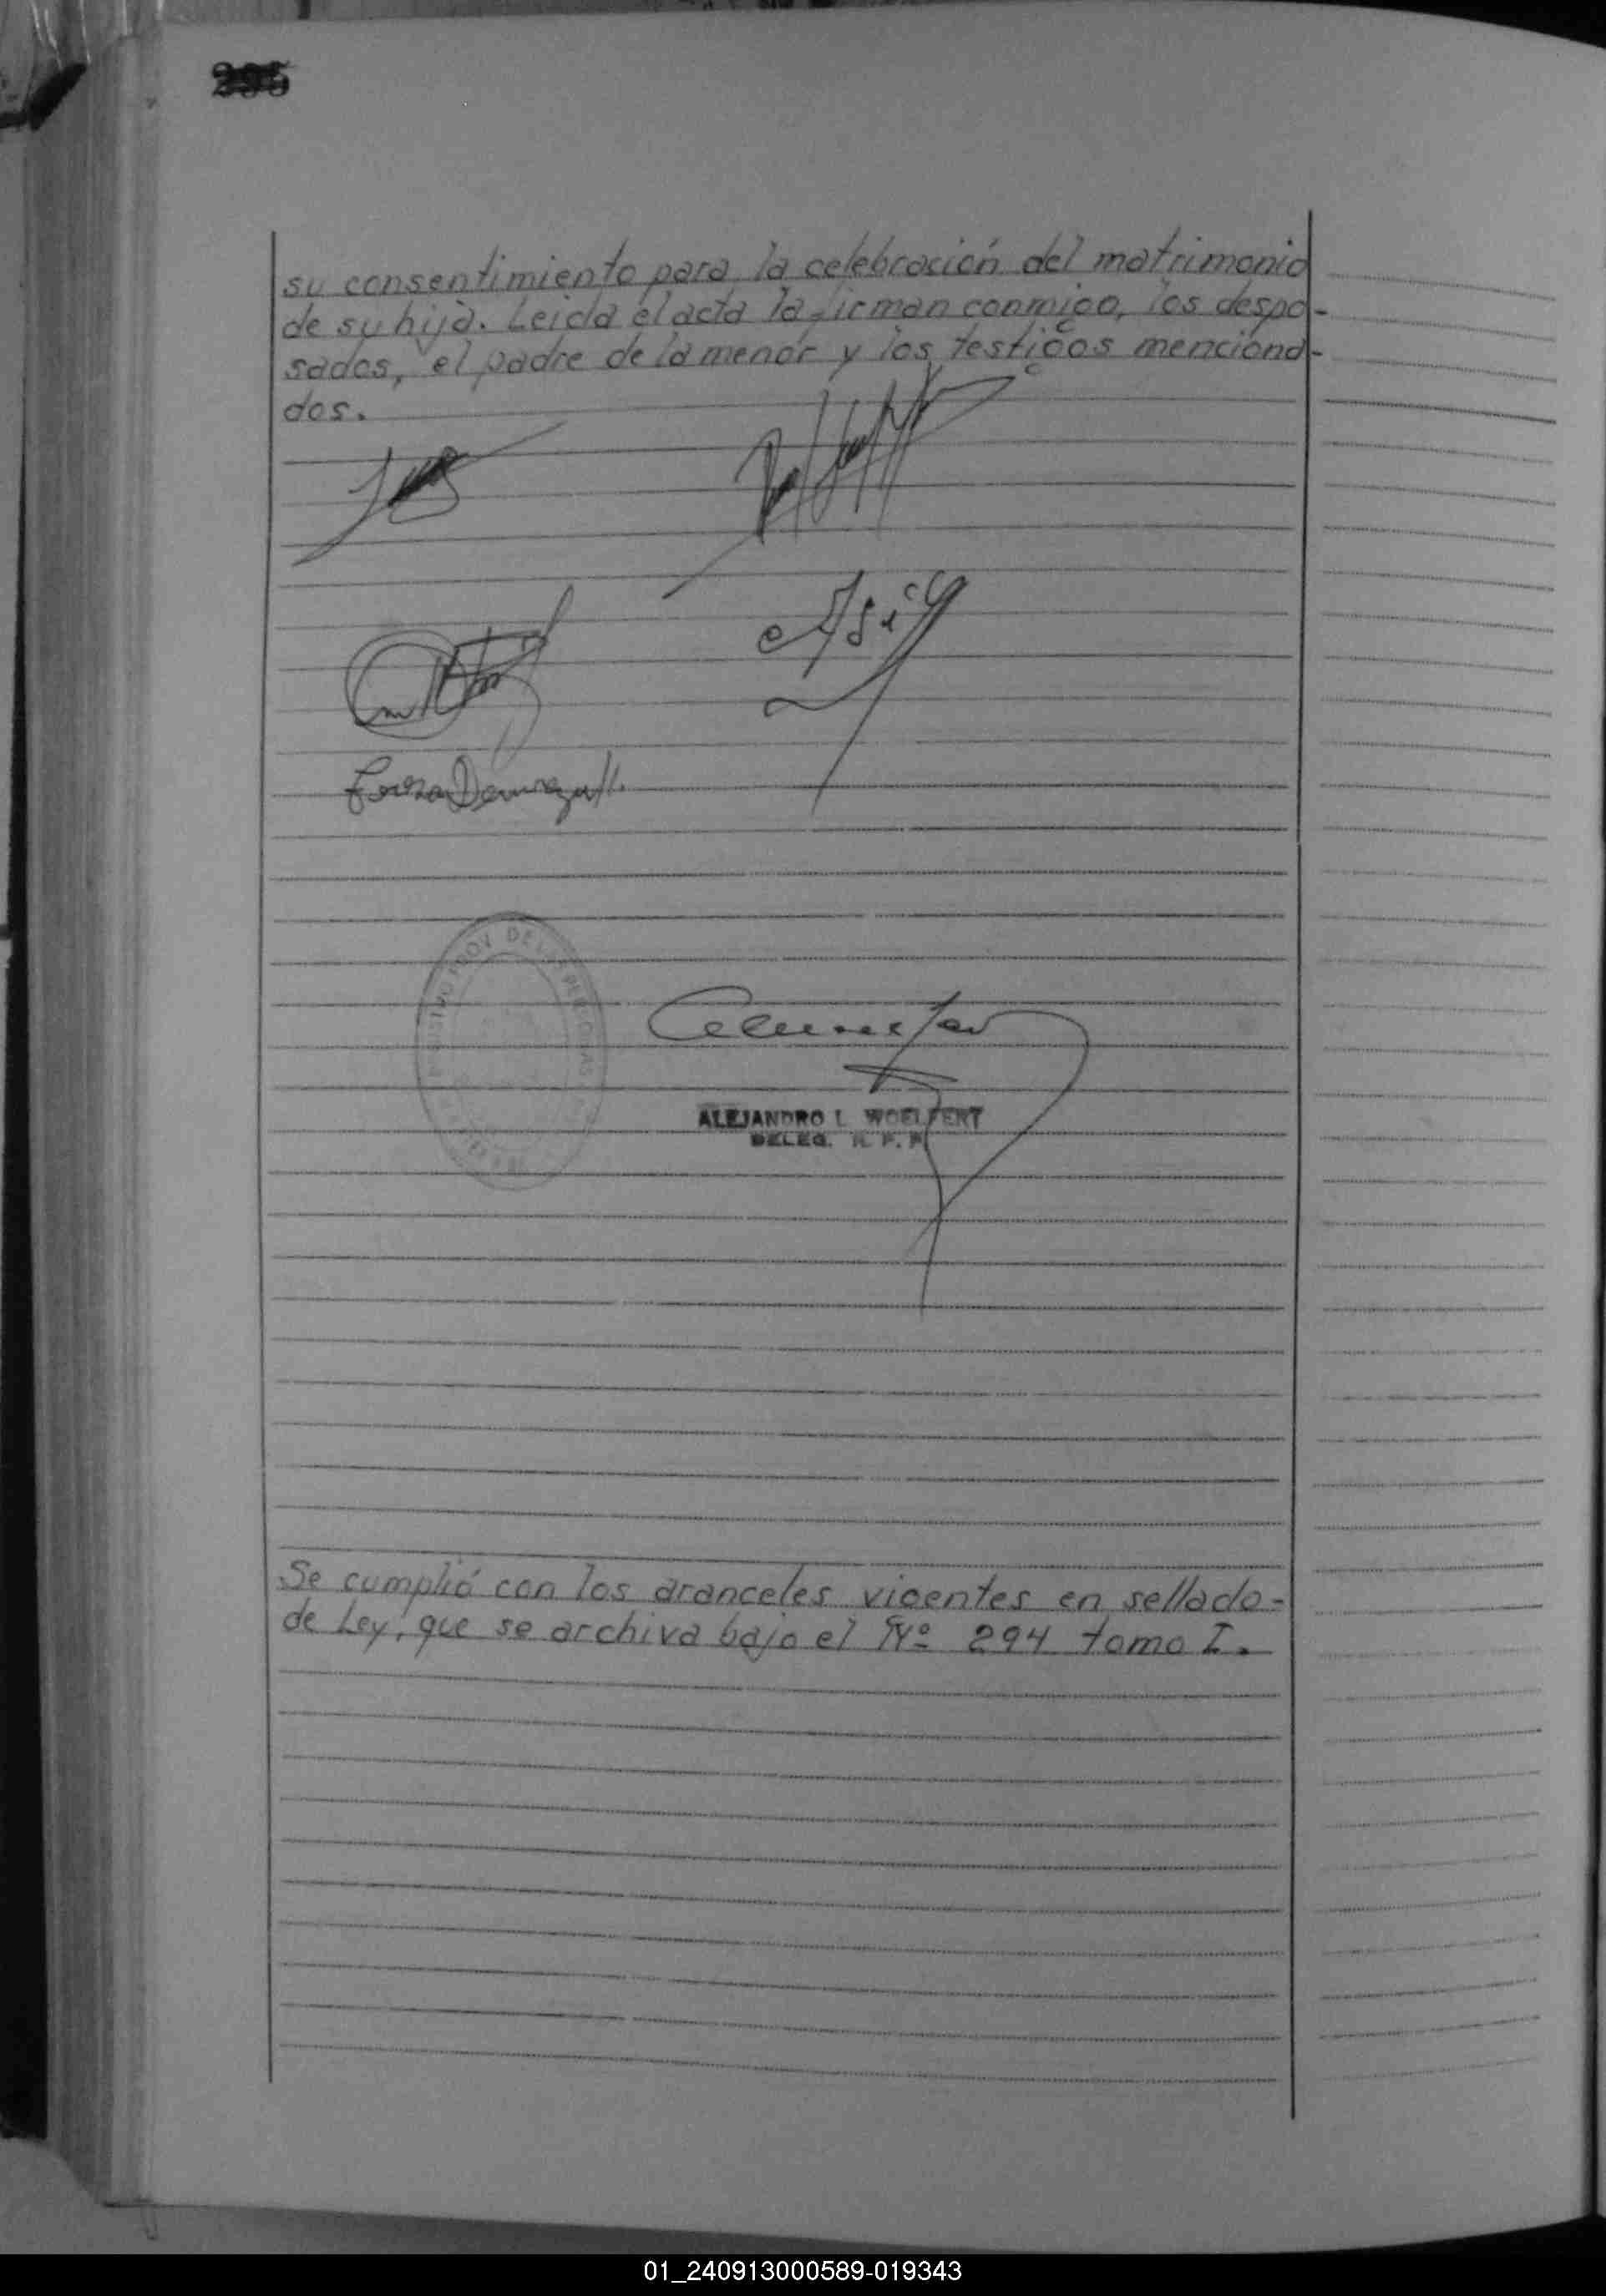 295
su consentimiento para la celebración del matrimonio
de su hija. Leida el acta la firman conmigo, los despo-
sados, el padre de la menor y los testigos menciona-
dos.
ALEJANDRO L. WOELFERT
DELEG. R. P. P.
Se cumplió con los aranceles vigentes en sellado-
de Ley, que se archiva bajo el Nº 294 tomo I.
01_240913000589-019343